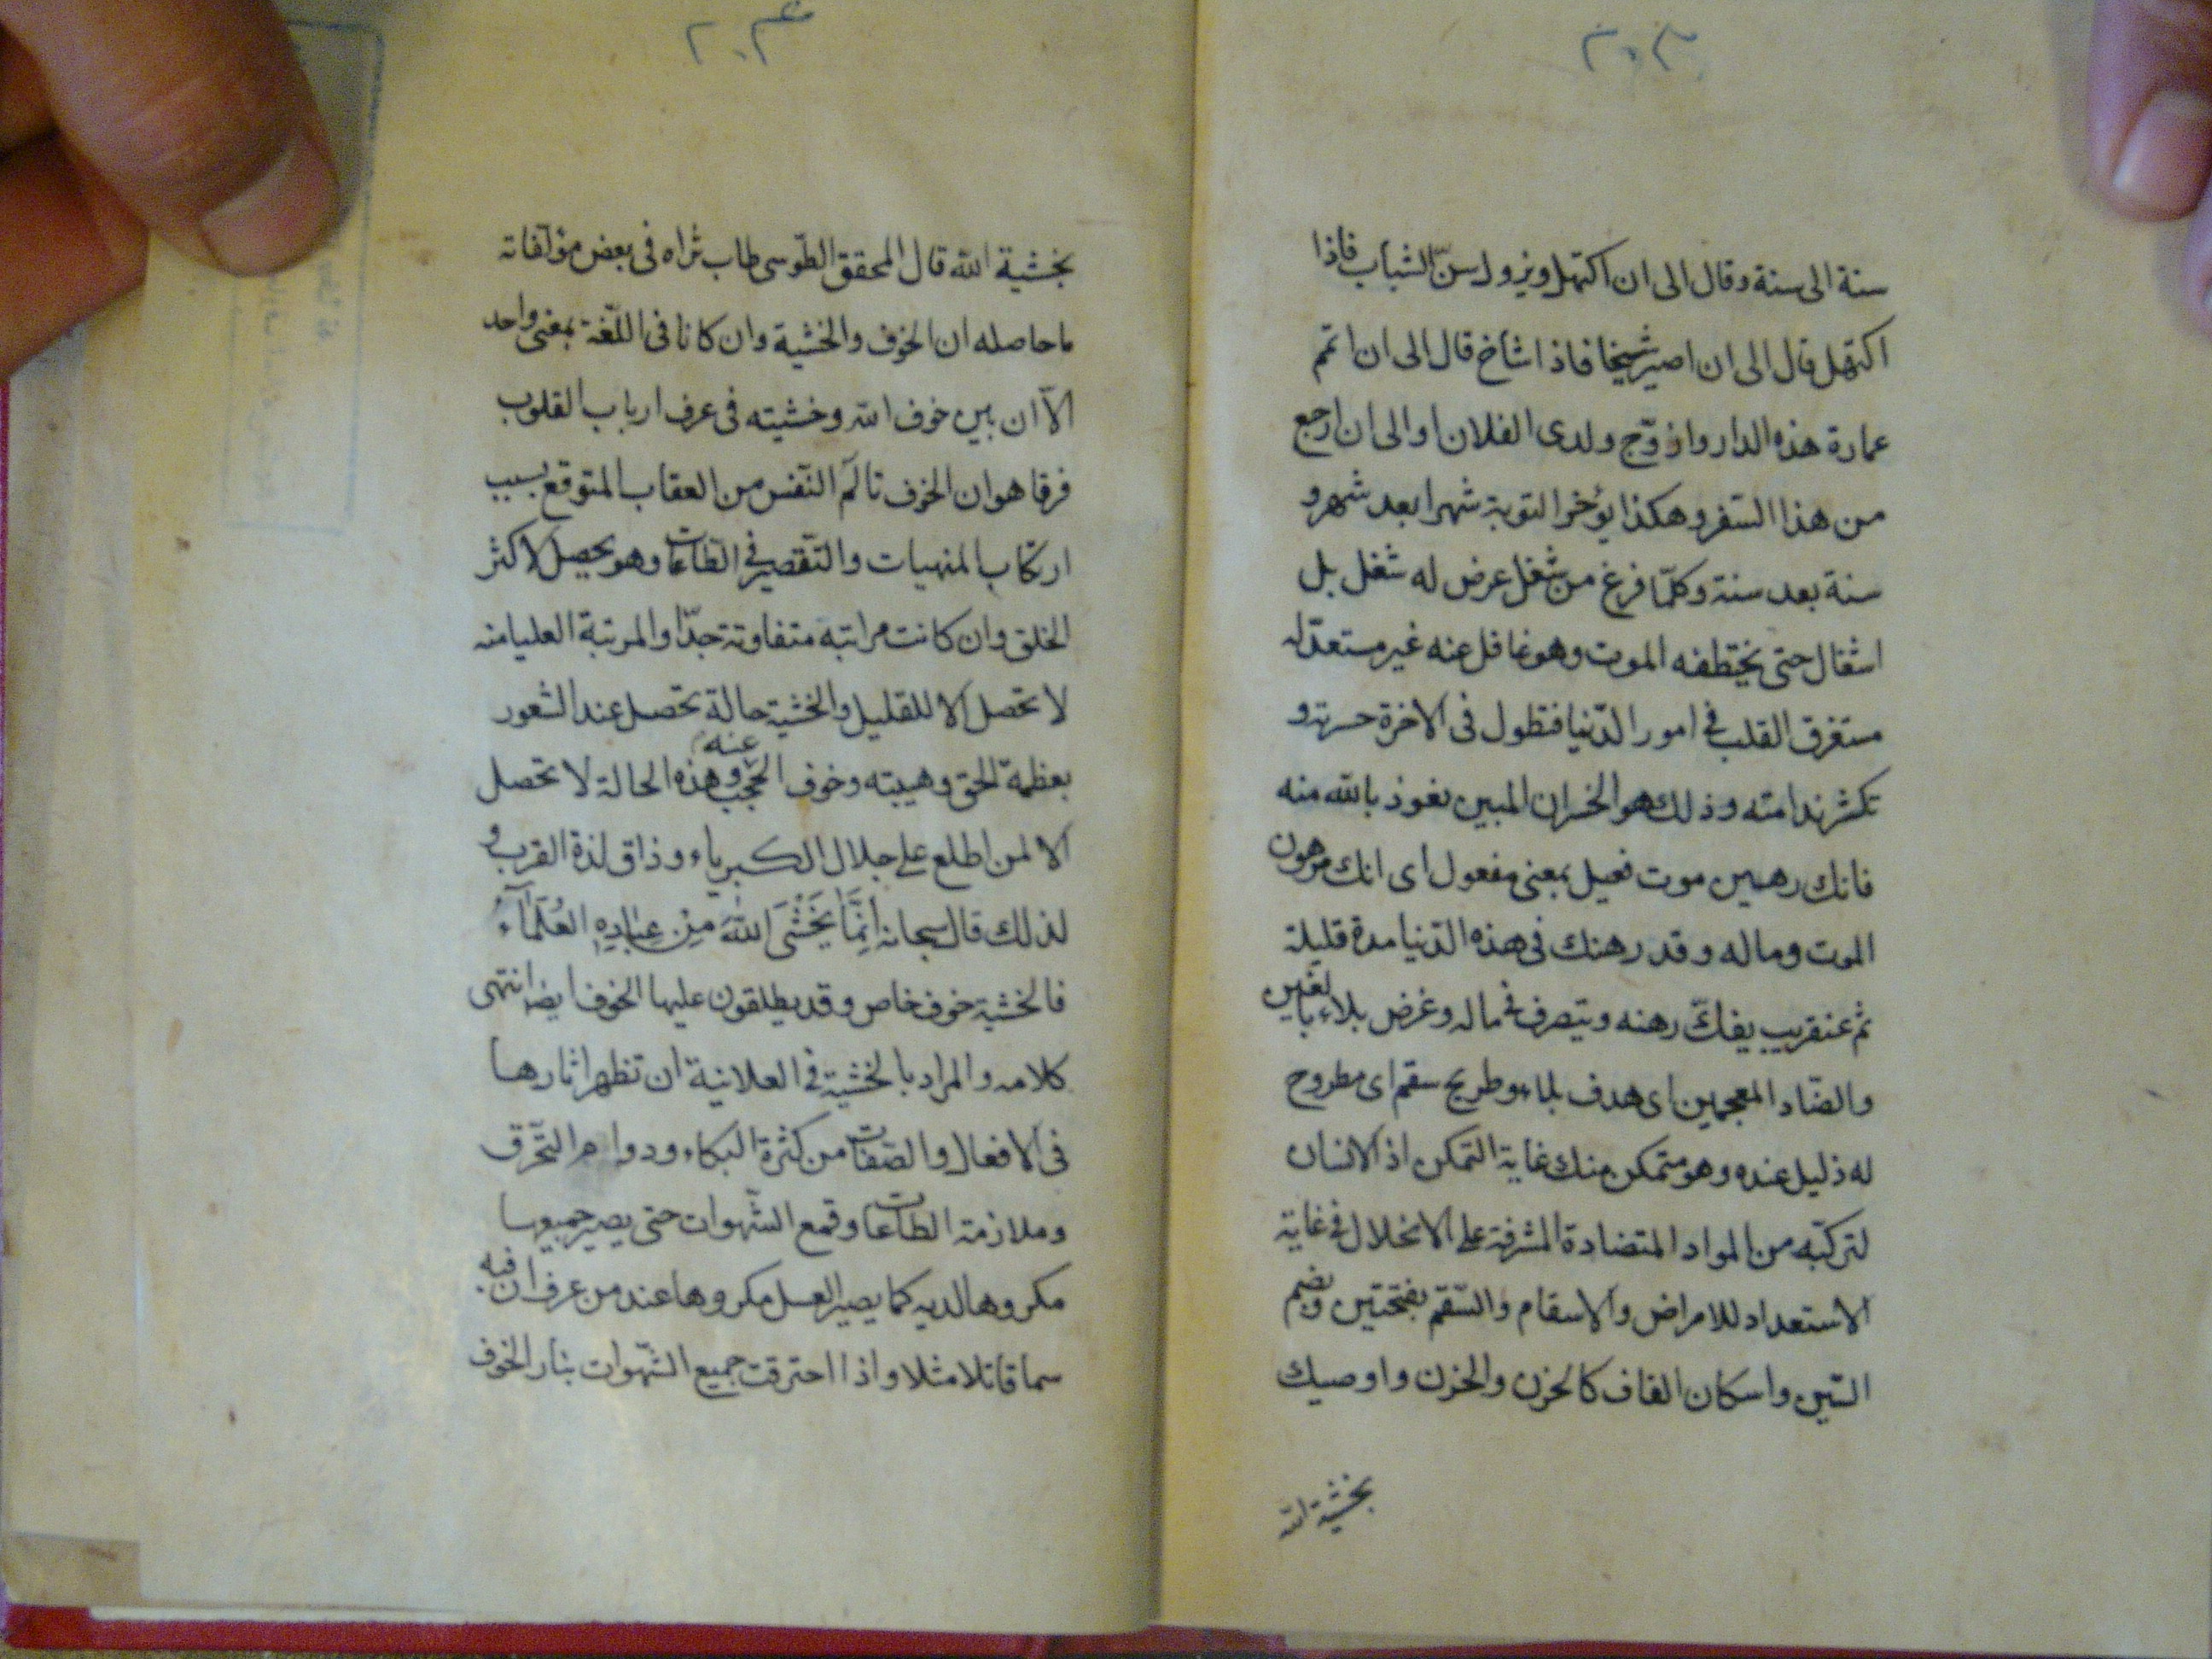 ٢٠٣
سنة الى سنة وقال الى ان اكتهل ويزول سنّ الشباب فاذا
اكتهل قال الى ان اصير شيخا فاذا شاخ قال الى ان اتمم
عمارة هذه الدار وازوّج ولدى الفلان او الى ان ارجع
من هذا السّفر وهكذا يؤخر التوبة شهرا بعد شهر و
سنة بعد سنة وكلّما فرغ من شغل عرض له شغل بل
اشغال حتى يختطفه الموت وهو غافل عنه غير مستعدّ له
مستغرق القلب فى امور الدّنيا فتطول فى الاخرة حسرته و
تكثر ندامته وذلك هو الخسران المبين نعوذ بالله منه
فانك رهين موت فعيل بمعنى مفعول اى انك مرهون
الموت وماله وقد رهنك فى هذه الدّنيا مدة قليلة
ثم عنقريب يفكّ رهنه ويتصرف فى ماله وغرض بلاء بالغين
والضّاد المعجمين اى هدف بلاء وطريح سقم اى مطروح
له ذليل عنده وهو متمكن منك غاية التمكن اذ الانسان
لتركّبه من المواد المتضادة المشرفة على الانحلال فى غاية
الاستعداد للامراض والاسقام والسّقم بفتحتين وبضم
السّين واسكان القاف كالحزن والحزن واوصيك
بخشية الله
٢٠٤
بخشية الله قال المحقق الطّوسى طاب ثراه فى بعض مؤلفاته
ما حاصله ان الخوف والخشية وان كانا فى اللّغة بمعنى واحد
الاّ ان بين خوف الله وخشيته فى عرف ارباب القلوب
فرقا هو ان الخوف تألّم النّفس من العقاب المتوقع بسبب
ارتكاب المنهيات والتّقصير فى الطّاعات وهو يحصل لاكثر
الخلق وان كانت مراتبه متفاوتة جدّا والمرتبة العليا منه
لا تحصل الا للقليل والخشية حالة تحصل عند الشعور
بعظمة الحق وهيبته وخوف الحجب عنه وهذه الحالة لا تحصل
الا لمن اطلع على جلال الكبرياء وذاق لذة القرب و
لذلك قال سبحانه اِنَّمَا يَخْشَى اللهَ مِنْ عِبَادِهِ العُلَمَآءُ
فالخشية خوف خاص وقد يطلقون عليها الخوف ايضا انتهى
كلامه والمراد بالخشية فى العلانية ان تظهر اثارها
فى الافعال والصّفات من كثرة البكاء ودوام التّحرّق
وملازمة الطّاعات وقمع الشّهوات حتى يصير جميعها
مكروها لديه كما يصير العسل مكروها عند من عرف ان فيه
سما قاتلا مثلا واذا احترقت جميع الشّهوات بنار الخوف